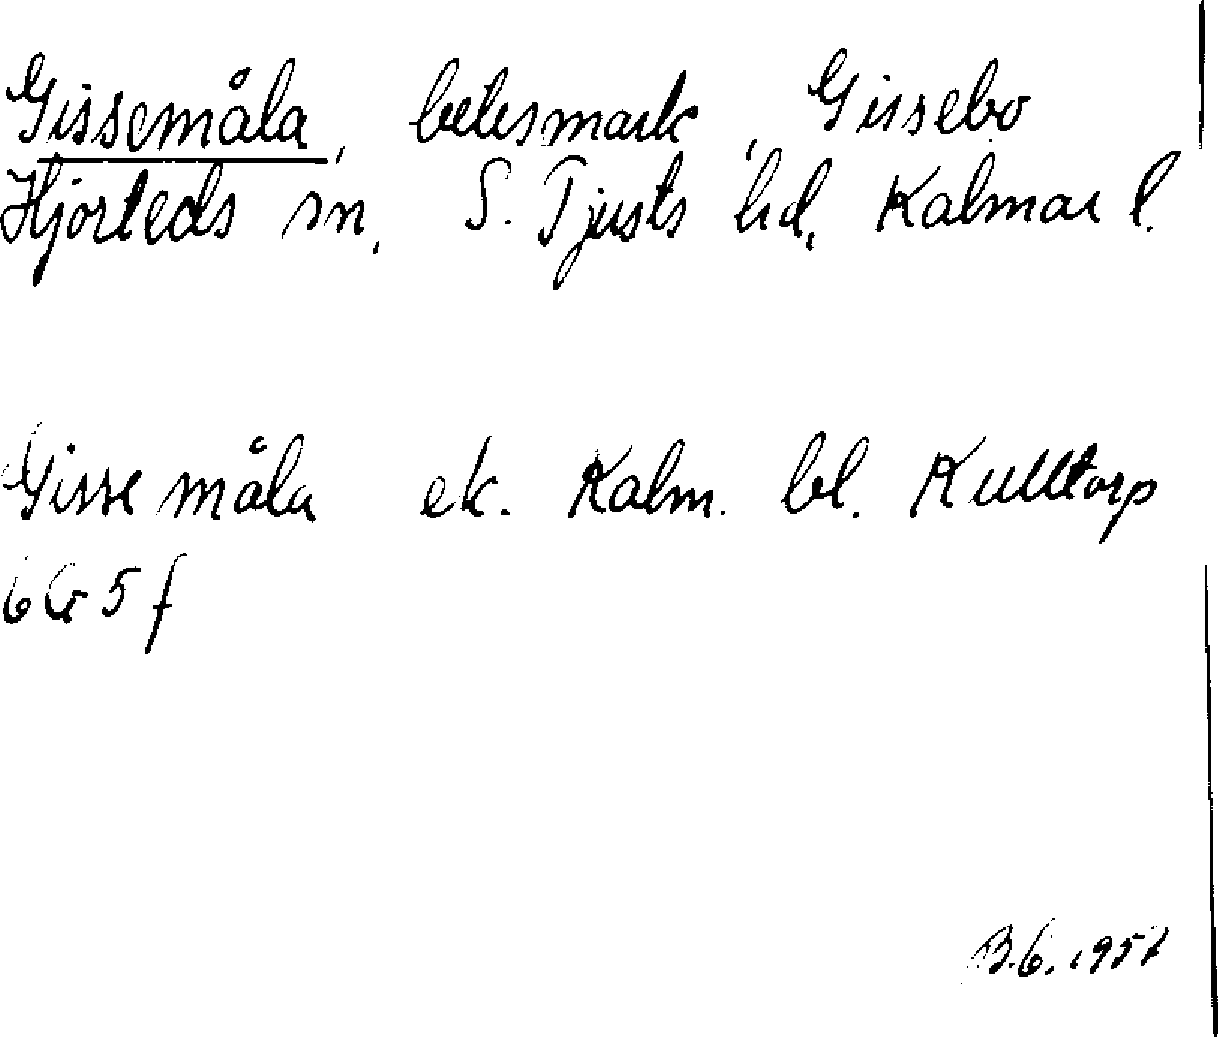 Gissemåla, betesmark, Gissebo
Hjorteds sn, S. Tjusts hd, Kalmar l.
Gissemåla ek. Kalm. bl. Kulltorp
6G5f
B.G. 1957